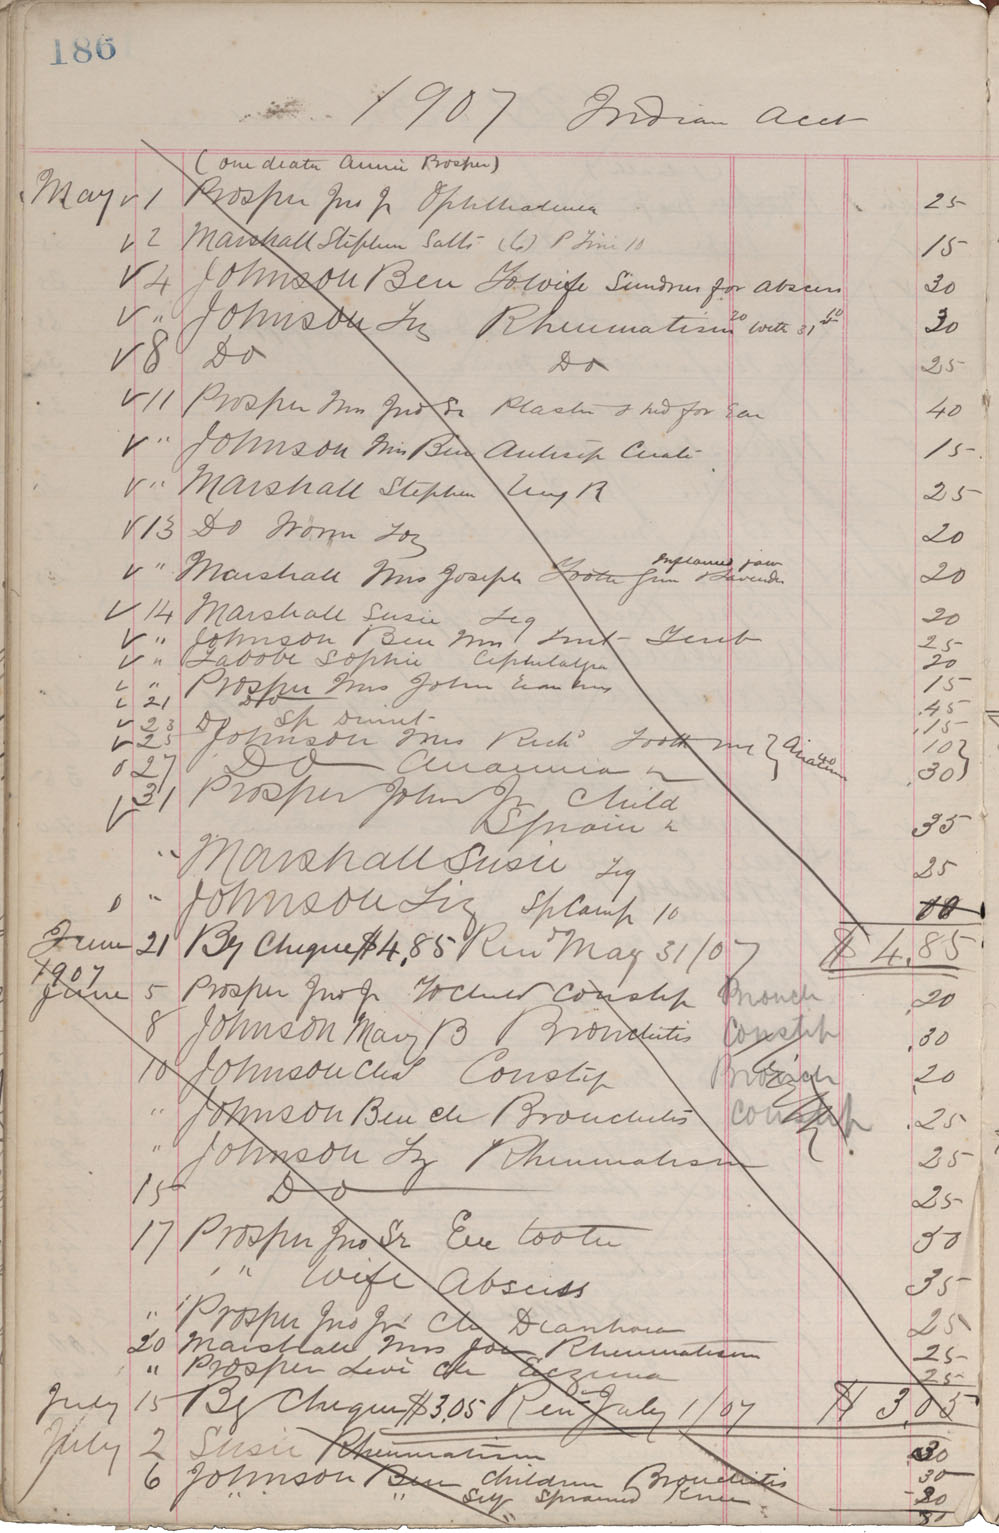 186
1907 Indian Acct
(one death Annie Prosper)
May 1 Prosper Jno Jr Ophthalmia 25
2 Marshall Stephen Salts (6) 10 15
4 Johnson Ben To Wife Sundries for Abscess 30
" Johnson Liz Rheumatism 20 with 31 10 30
8 Do Do 25
11 Prosper Mrs Jno Sr Plaster & Med for Ear 40
" Johnson Mrs Ben Antisep Cerate 15
" Marshall Stephen Ung R 25
13 Do Worm Loz 20
" Marshall Mrs Joseph Tooth Gum & Lavender Inflamed jaw 20
14 Marshall Susie Leg 20
" Johnson Ben Mrs Lint Tereb 25
" Labobe Sophie Cephalalgia 20
" Prosper Mrs John 15
21 Do 45
23 Do Sp 15
25 Johnson Mrs Rich'd Tooth 10
27 Do Anaemia 30
31 Prosper John Jr Child
Sprain 35
" Marshall Susie Leg 25
" Johnson Liz Sp Camp 10
June 21 By Cheque $4.85 Ren'd May 31/07 $4.85
1907
June 5 Prosper Jno Jr To Child Constip Bronch 20
8 Johnson Mary B Bronchitis Constip 30
10 Johnson Chas Constip Bronch 20
" Johnson Ben ch Bronchitis Constip 25
" Johnson Lz Rheumatism 25
15 Do 25
17 Prosper Jno Sr Eye tooth 30
" " Wife Abscess 35
" Prosper Jno Jr Ch Diarrhoea 25
20 Marshall Mrs Joe Rheumatism 25
" Prosper Levi ch Eczema 25
July 15 By Cheque $3.05 Ren July 1/07 $3.05
July 2 Susie Rheumatism 30
6 Johnson Ben Children Bronchitis 30
" " Self Sprained Knee 30